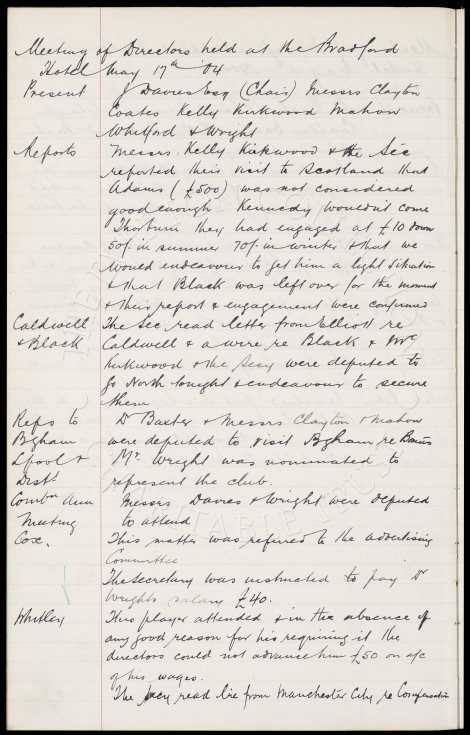 Meeting of Directors held at the Bradford
Hotel May 17th '04
Present J Davies Esq (Chair) Messrs Clayton
Coates Kelly Kirkwood Mahon
Whitford & Wright
Reports Messrs. Kelly Kirkwood & the Sec
reported their visit to Scotland that
Adams (£500) was not considered
good enough Kennedy wouldn't come
Thorburn they had engaged at £10 down
50/- in summer 70/- in winter & that we
would endeavour to get him a light situation
& that Black was left over for the moment
& their report & engagement were confirmed
Caldwell The Sec read letter from Elliott re
& Black Caldwell & a wire re Black & Mr
Kirkwood & the Secy were deputed to
go North tonight & endeavour to secure
them
Reps to Dr Baxter & Messrs Clayton & Mahon
Bgham were deputed to visit Bgham re
L'pool & Mr. Wright was nominated to
Dist represent the club.
Combn Ann Messrs Davies & Wright were deputed
Meeting to attend
Cox. This matter was referred to the advertising
Committee
The Secretary was instructed to pay Dr
Wrights salary £40.
Whitley This player attended & in the absence of
any good reason for his requiring it the
directors could not advance him £50 on a/c
of his wages.
The Secy read from Manchester City re Compensation